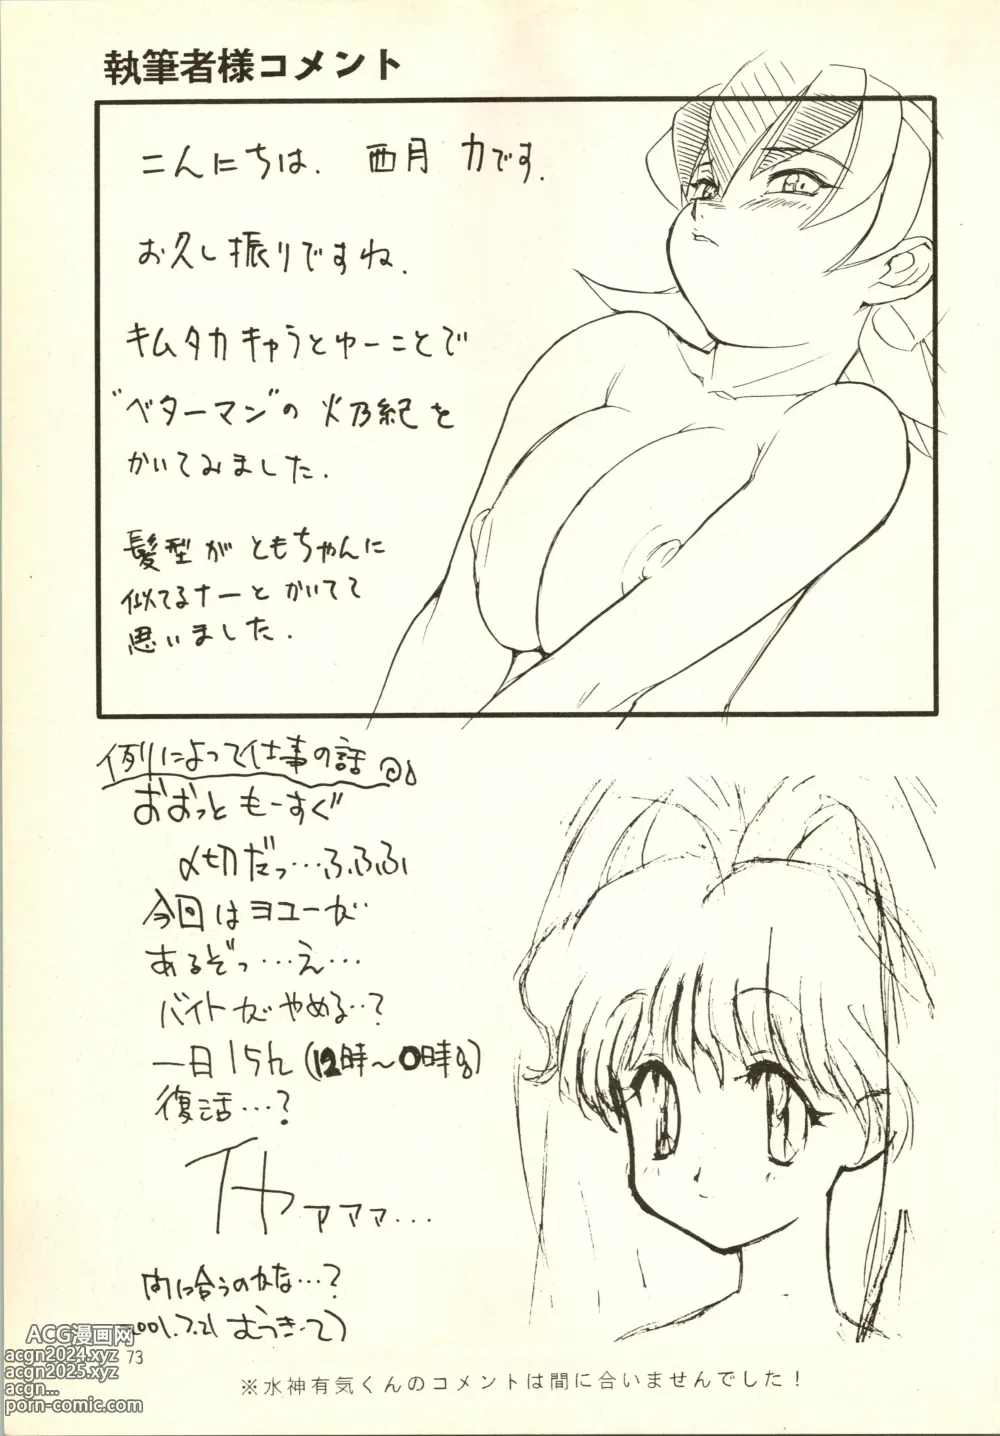 執筆者様コメント
こんにちは. 西月 力です.
お久し振りですね.
キムタカキャラとゆーことで
"ベターマン"の 火乃紀を
かいてみました.
髪型が ともちゃんに
似てるナーと かいてて
思いました.
例によって仕事の話
おおっと もーすぐ
〆切だっ…ふふふ
今回はヨユーが
あるぞっ…え…
バイトがやめる…?
一日15h(12時～0時
復活…?
イヤァァァ…
間に合うのかな…?
2001.7.21 むつきつとむ
ACG漫画网
acgn2024.xyz
acgn2025.xyz
acgn...
porn-comic.com
73
※水神有気くんのコメントは間に合いませんでした!